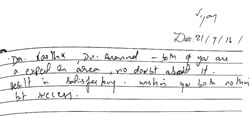 Vijay
Dt: 21/7/16
Dr. Kartha, Dr. Aravind - both of you are
a expert in area, no doubt about it.
result is satisfactory. wishing you both nothing
but success.